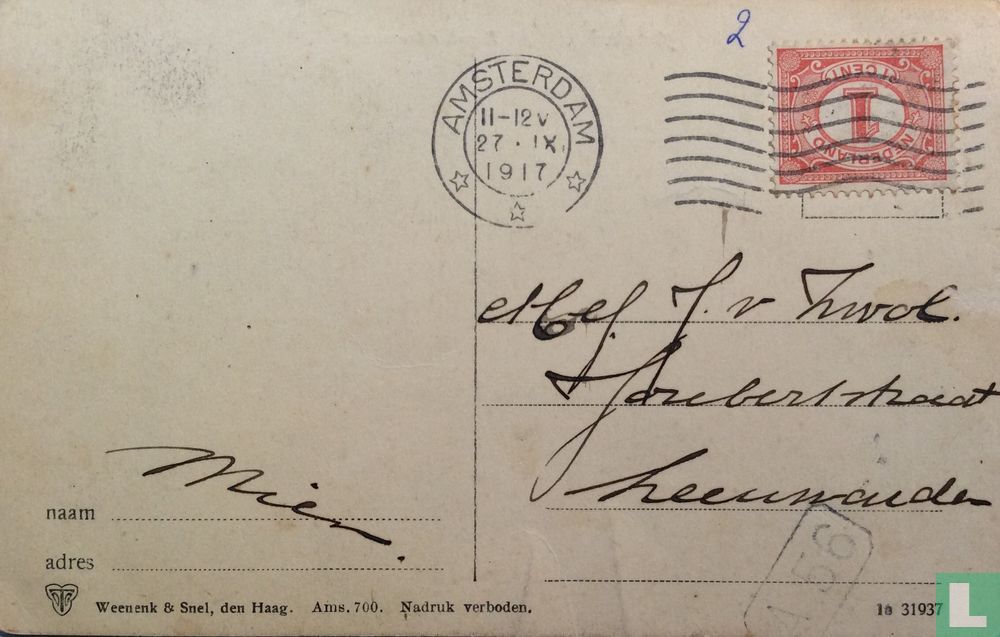 2
AMSTERDAM
11-12 V
27 . IX.
1917
1 CENT
1
NEDERLAND
Mej. J. v Zwol.
Joubertstraat
Leeuwarden
Mien.
naam
adres
A 56
Weenenk & Snel, den Haag. Ams. 700. Nadruk verboden.
1a 31937
L